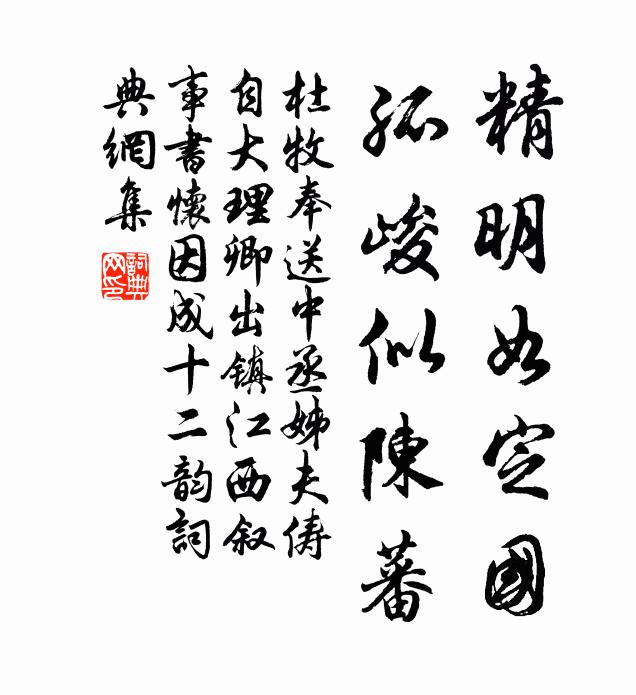 精明如定國
孤峻似陳蕃
杜牧奉送中丞姊夫儔
自大理卿出鎮江西叙
事書懷因成十二韵詞
典網集
詞典
网印